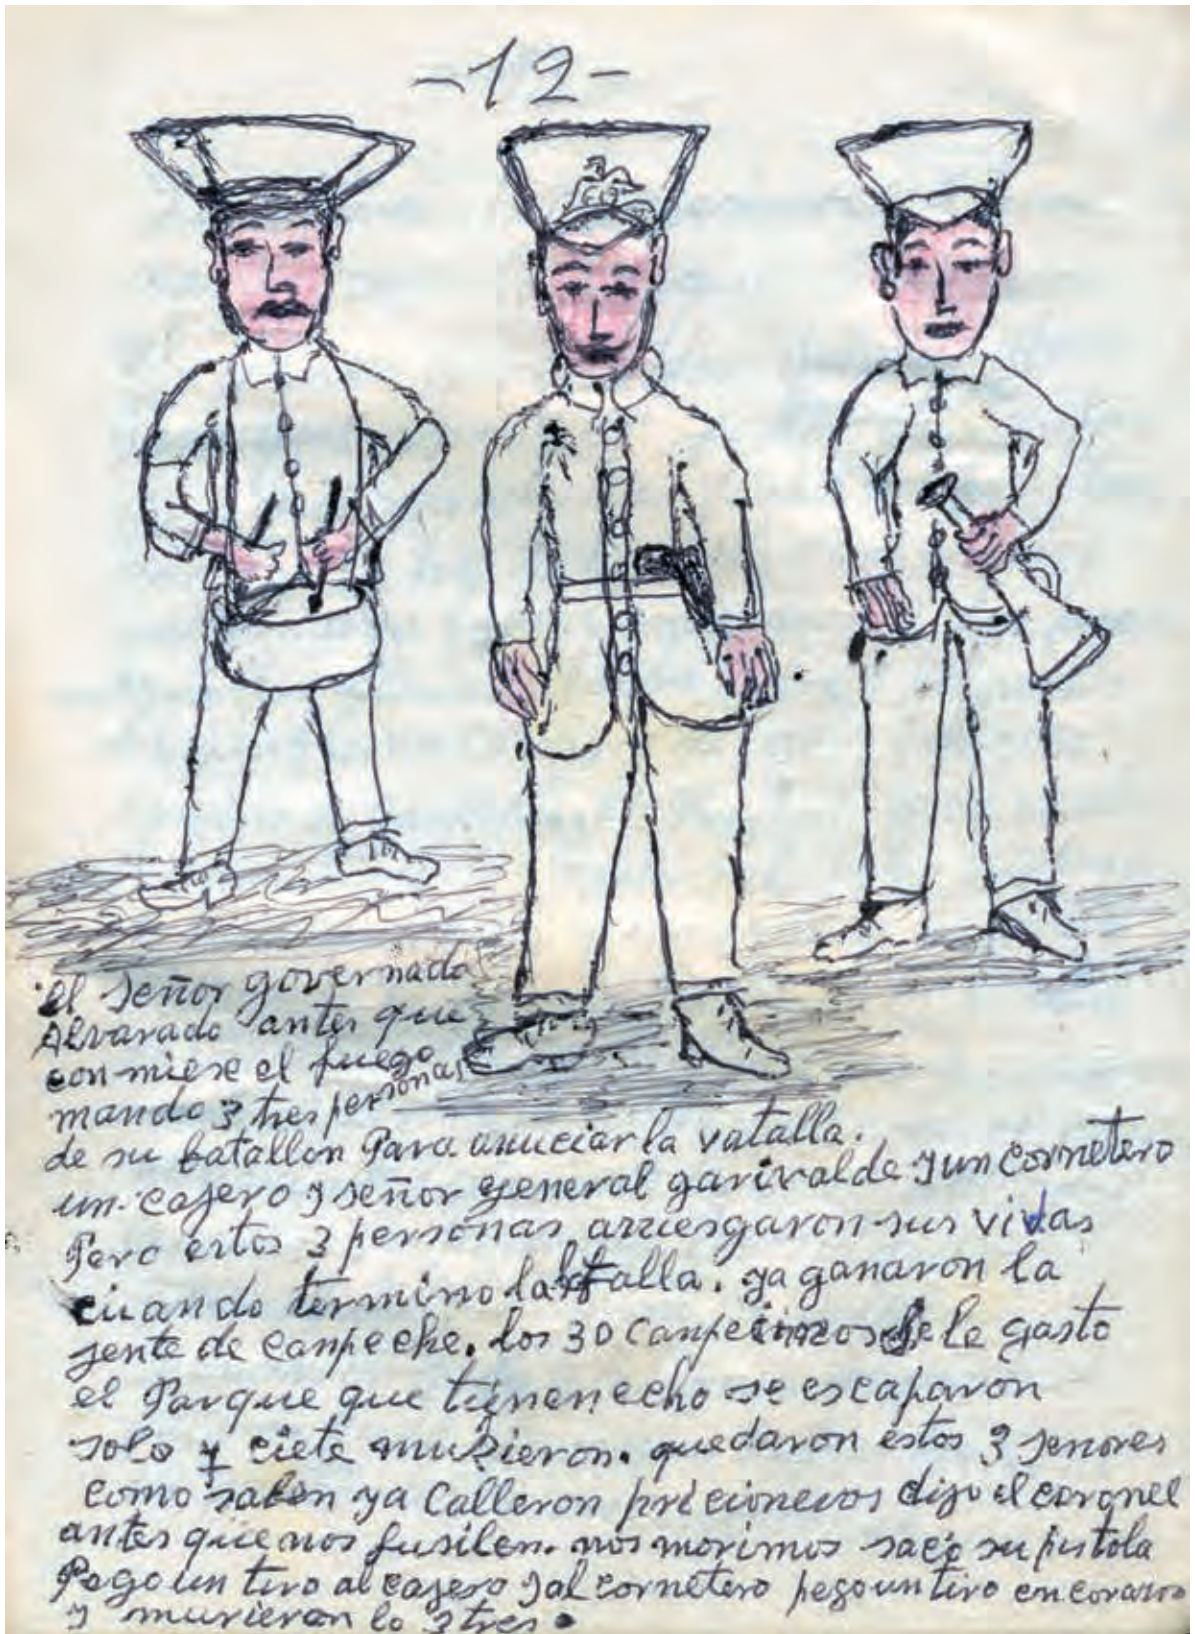 -12-
el señor governado
Alvarado antes que
conmiese el fuego
mando 3 tres personas
de su batallon Para anuciar la vatalla.
un cajero y señor general garivalde y un cornetero
Pero estos 3 personas arriesgaron sus vidas
cuando termino la batalla. ya ganaron la
jente de canpeche. los 30 canpecinos se le gasto
el Parque que tienen echo se escaparon
solo 7 ciete murieron. quedaron estos 3 senores
como saben ya Calleron pricioneros dijo el coronel
antes que nos fusilen. nos morimos saco su pistola
Pego un tiro al cajero y al cornetero pego un tiro en corazo
y murieron lo 3 tres.